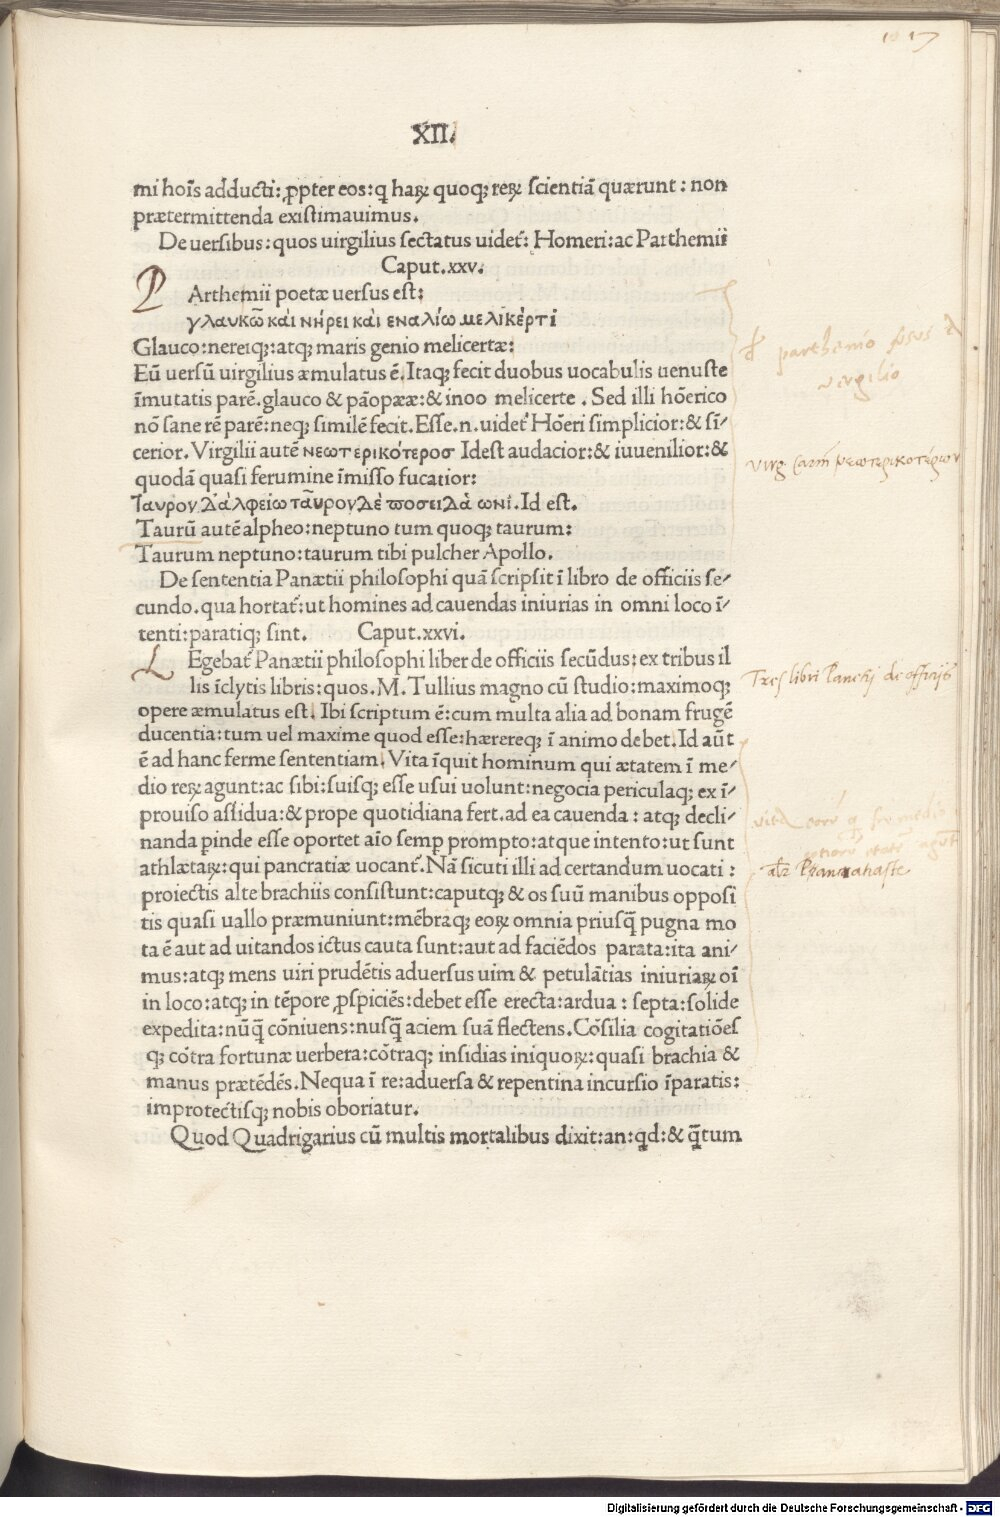 XII.
mi hoı̅s adducti: ꝓpter eos: q̨ haꝝ quoqꝫ reꝝ scientiā quærunt: non
prætermittenda existimauimus.
De uersibus: quos uirgilius sectatus uidet᷑: Homeri: ac Parthemii
Caput.xxv.
P Arthemii poetæ uersus est:
γλαυκῶ κάι νήρει κάι εναλίω μελικέρτι
Glauco: nereiqꝫ: atqꝫ maris genio melicertæ:
Eū uersū uirgilius æmulatus ē. Itaqꝫ fecit duobus uocabulis uenuste
īmutatis parē. glauco & pāopææ: & inoo melicerte. Sed illi hōerico
nō sane rē parē: neqꝫ similē fecit. Esse.n.uidet᷑ Hōeri simplicior: & sī-
cerior. Virgilii autē νεωτερικότεροσ Idest audacior: & iuuenilior: &
quodā quasi ferumine īmisso fucatior:
Ταυρον δ'αλφείω ταῦρον δὲ ποσειδά ωνι. Id est.
Taurū autē alpheo: neptuno tum quoqꝫ taurum:
Taurum neptuno: taurum tibi pulcher Apollo.
De sententia Panætii philosophi quā scripsit ī libro de officiis se-
cundo. qua hortat᷑: ut homines ad cauendas iniurias in omni loco ī-
tenti: paratiqꝫ sint. Caput.xxvi.
L Egebat᷑ Panætii philosophi liber de officiis secūdus: ex tribus il
lis īclytis libris: quos. M. Tullius magno cū studio: maximoqꝫ
opere æmulatus est. Ibi scriptum ē: cum multa alia ad bonam frugē
ducentia: tum uel maxime quod esse: hærereqꝫ ī animo debet. Id aūt
ē ad hanc ferme sententiam. Vita īquit hominum qui ætatem ī me-
dio reꝝ agunt: ac sibi: suisqꝫ esse usui uolunt: negocia periculaqꝫ ex ī-
prouiso assidua: & prope quotidiana fert. ad ea cauenda: atqꝫ decli-
nanda pinde esse oportet aīo semp prompto: atque intento: ut sunt
athlætaꝝ: qui pancratiæ uocant᷑. Nā sicuti illi ad certandum uocati:
proiectis alte brachiis consistunt: caputqꝫ & os suū manibus opposi
tis quasi uallo præmuniunt: mēbraqꝫ eoꝝ omnia priusq̄ pugna mo
ta ē aut ad uitandos ictus cauta sunt: aut ad faciēdos parata: ita ani-
mus: atqꝫ mens uiri prudētis aduersus uim & petulātias iniuriaꝝ oī
in loco: atqꝫ in tēpore ꝓspiciēs: debet esse erecta: ardua: septa: solide
expedita: nūq̄ cōniuens: nusq̄ aciem suā flectens. Cōsilia cogitatiōes
qꝫ cōtra fortunæ uerbera: cōtraqꝫ insidias iniquoꝝ: quasi brachia &
manus prætēdēs. Nequa ī re: aduersa & repentina incursio īparatis:
improtectisqꝫ nobis oboriatur.
Quod Quadrigarius cū multis mortalibus dixit: an: q̨d: & q̄tum
parthenio
virgilio
Virg. Carm̄ νεωτερικοτερων
Tres libri Panetij de officijs
vita
Digitalisierung gefördert durch die Deutsche Forschungsgemeinschaft - DFG